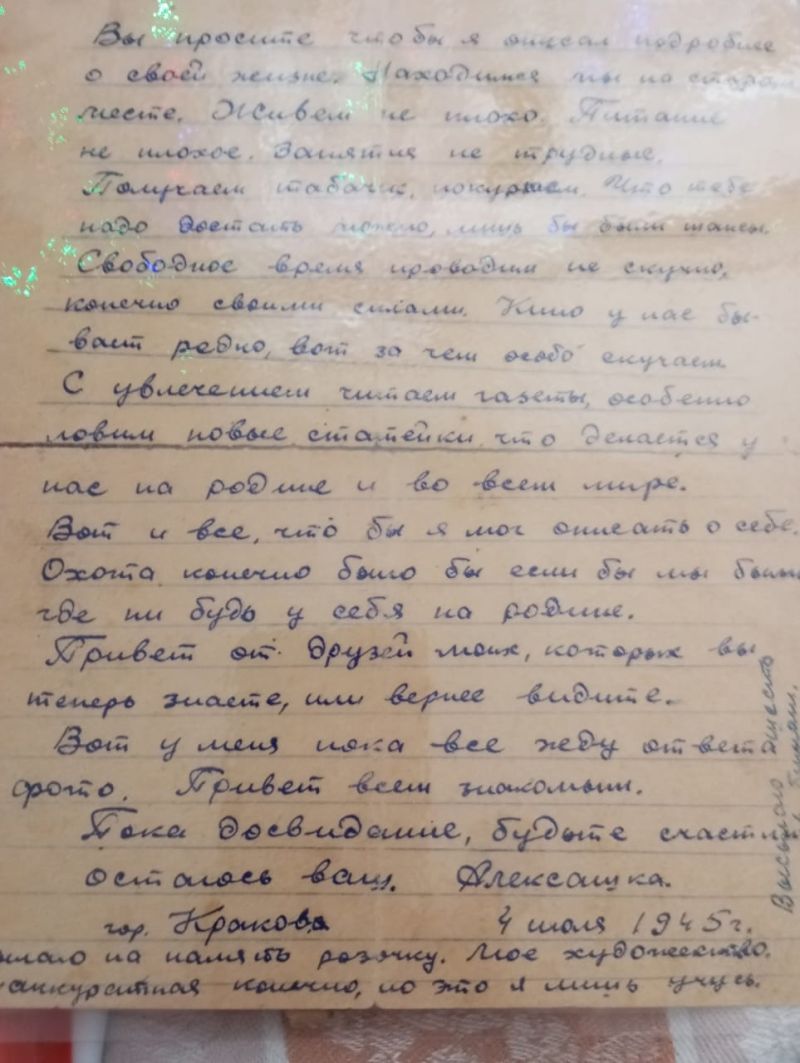 Вы просите что бы я описал подробнее
о своей жизне. Находимся мы на старом
месте. Живем не плохо. Питание
не плохое. Занятия не трудные.
Получаем табачик, покуриваем. Что тебе
надо достать можно, лишь бы были шансы.
Свободное время проводим не скучно,
конечно своими силами. Кино у нас бы-
вает редко, вот за чем особо скучаем
С увлечением читаем газеты, особенно
ловим новые статейки что делается у
нас на родине и во всем мире.
Вот и все, что бы я мог описать о себе.
Охота конечно было бы если бы мы были
где ни будь у себя на родине.
Привет от друзей моих, которых вы
теперь знаете, или вернее видите.
Вот у меня пока все жду ответа
фото. Привет всем знакомым.
Пока досвидание, будьте
остаюсь ваш. Алексашка.
гор. Краков 4 июля 1945г.
на память розочку. Мое художество.
конечно, но это я лишь учусь.
Высылаю